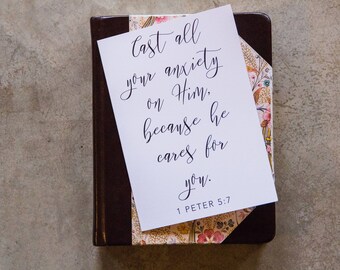 Cast all
your anxiety
on Him,
because he
cares for
you.
1 PETER 5:7